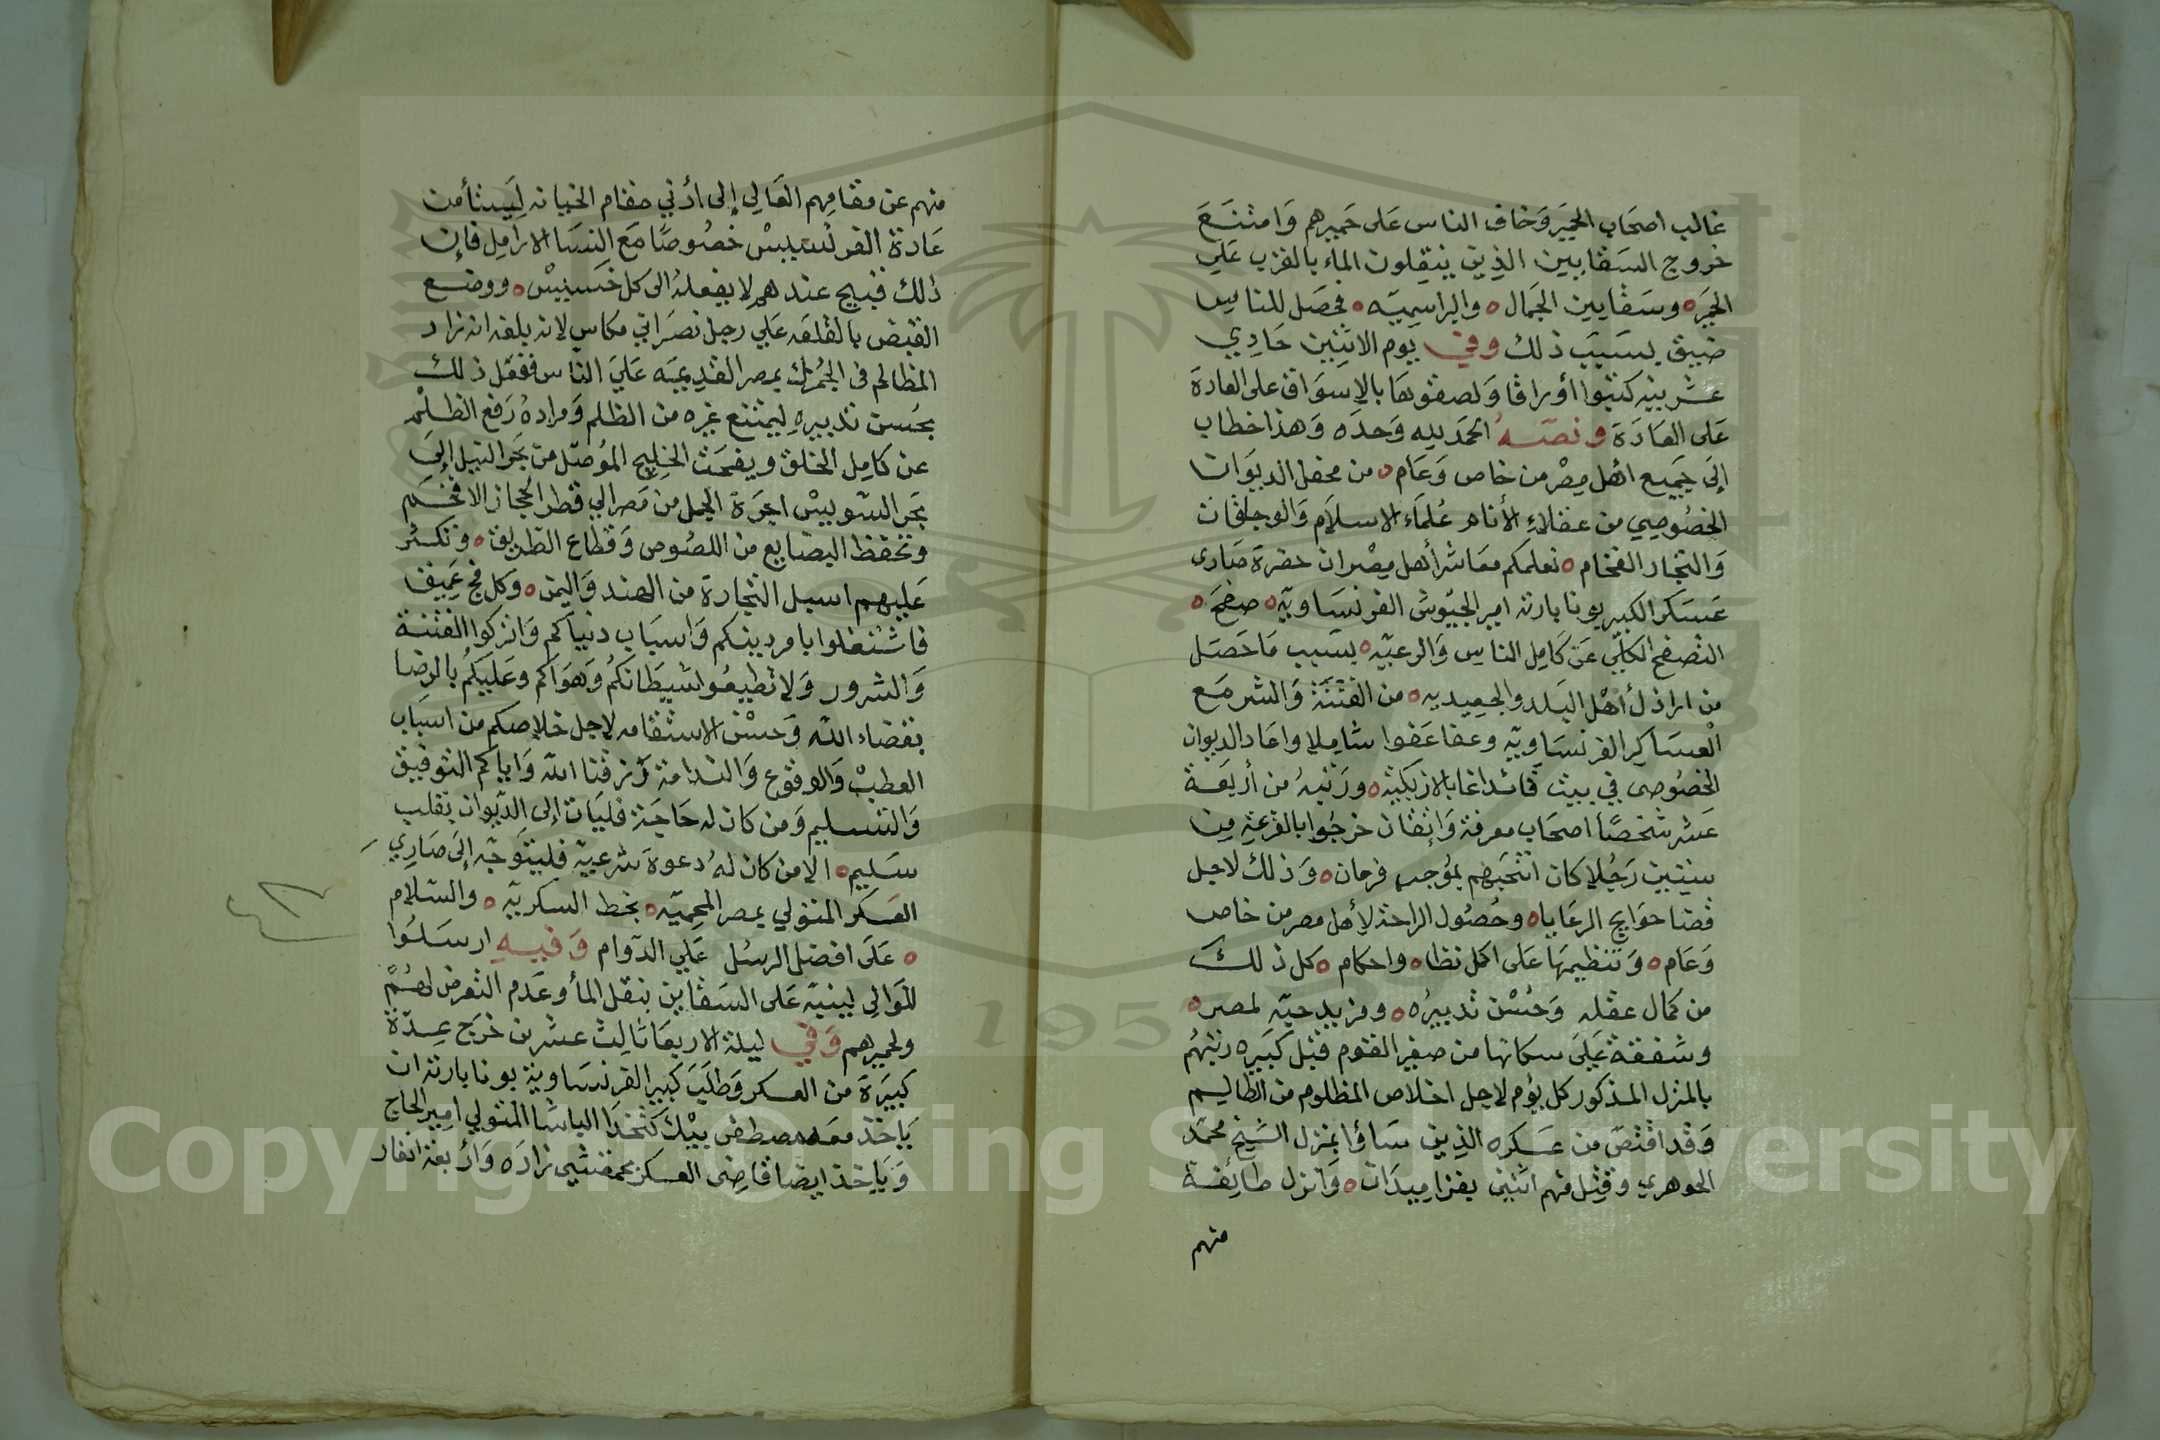 غالب اصحاب الحمير وخاف الناس على حميرهم وامتنع
خروج السقايين الذين ينقلون الماء بالقرب علي
الحمر وسقايين الجمال والراسيه فحصل للناس
ضيق بسبب ذلك وفي يوم الاثنين حادي
عشرينه كتبوا أوراقا ولصقوها بالاسواق على العادة
على العادة ونصه الحمد لله وحده وهذا خطاب
إلى جميع اهل مصر من خاص وعام من محفل الديوان
الخصوصي من عقلاء الأنام علماء الاسلام والوجاقات
والتجار الفخام نعلمكم معاشر أهل مصر ان حضرة صارى
عسكر الكبير بونابارته امير الجيوش الفرنساويه صفح
الصفح الكلي عن كامل الناس والرعيه بسبب ما حصل
من اراذل أهل البلد والجعيديه من الفتنة والشر مع
العساكر الفرنساويه وعفا عفوا شاملا واعاد الديوان
الخصوصى في بيت قائد اغا بالازبكيه ورتبه من أربعة
عشر شخصا اصحاب معرفة وإتقان خرجوا بالقرعه من
ستين رجلا كان انتخبهم بموجب فرمان وذلك لاجل
قضا حوايج الرعايا وحصول الراحة لأهل مصر من خاص
وعام وتنظيمها على اكمل نظام واحكام كل ذلك
من كمال عقله وحسن تدبيره ومزيد حبه لمصر
وشفقة على سكانها من صغير القوم قبل كبيره رتبهم
بالمنزل المذكور كل يوم لاجل اخلاص المظلوم من الظالم
وقد اقتص من عسكره الذين ساؤا بمنزل الشيخ محمد
الجوهري وقتل منهم اثنين بقراميدان وانزل طائفة
منهم
منهم عن مقامهم العالي إلى أدنى مقام الخيانه ليست أمن
عادة الفرنسيس خصوصا مع النسا الارامل فإن
ذلك قبيح عندهم لا يفعله الى كل خسيس ووضع
القبض بالقلعه علي رجل نصراني مكاس لانه بلغه انه زاد
المظالم فى الجمرك بمصر القديمه على الناس ففعل ذلك
بحسن تدبيره ليمتنع غيره من الظلم ومراده رفع الظلم
عن كامل الخلق ويفحت الخليج الموصل من بحر النيل إلى
بحر السويس اجرة الحمل من مصر الي قطر الحجاز الافخم
وتحفظ البضايع من اللصوص وقطاع الطريق وتكثر
عليهم اسبل التجارة من الهند واليمن وكل فج عميق
فاشتغلوا بامر دينكم واسباب دنياكم واتركوا الفتنة
والشرور ولا تطيعوا شيطانكم وهواكم وعليكم بالرضا
بقضاء الله وحسن الاستقامه لاجل خلاصكم من اسباب
العطب والوقوع والندامة رزقنا الله واياكم التوفيق
والتسليم ومن كان له حاجة فليات إلى الديوان بقلب
سليم الا من كان له دعوة شرعية فليتوجه إلى صاري
العسكر المتولي بمصر المحميه بخط السكريه والسلام
على افضل الرسل علي الدوام وفيه ارسلوا
للوالي لينبه على السقاين بنقل الما وعدم التعرض لهم
ولحميرهم وفي ليلة الاربعا ثالث عشرين خرج عدة
كبيرة من العسكر وطلب كبير الفرنساوية بونابارته ان
ياخذ معه مصطفى بيك كتخدا الباشا المتولي امير الحاج
وياخذ ايضا قاضى العسكر بجمقشي زاده واربعة انفار